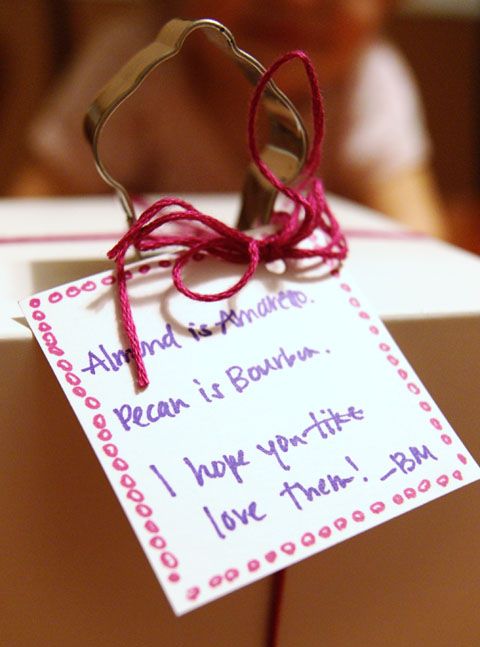 Almond is Amaretto.
Pecan is Bourbon.
I hope you like
love them! -BM